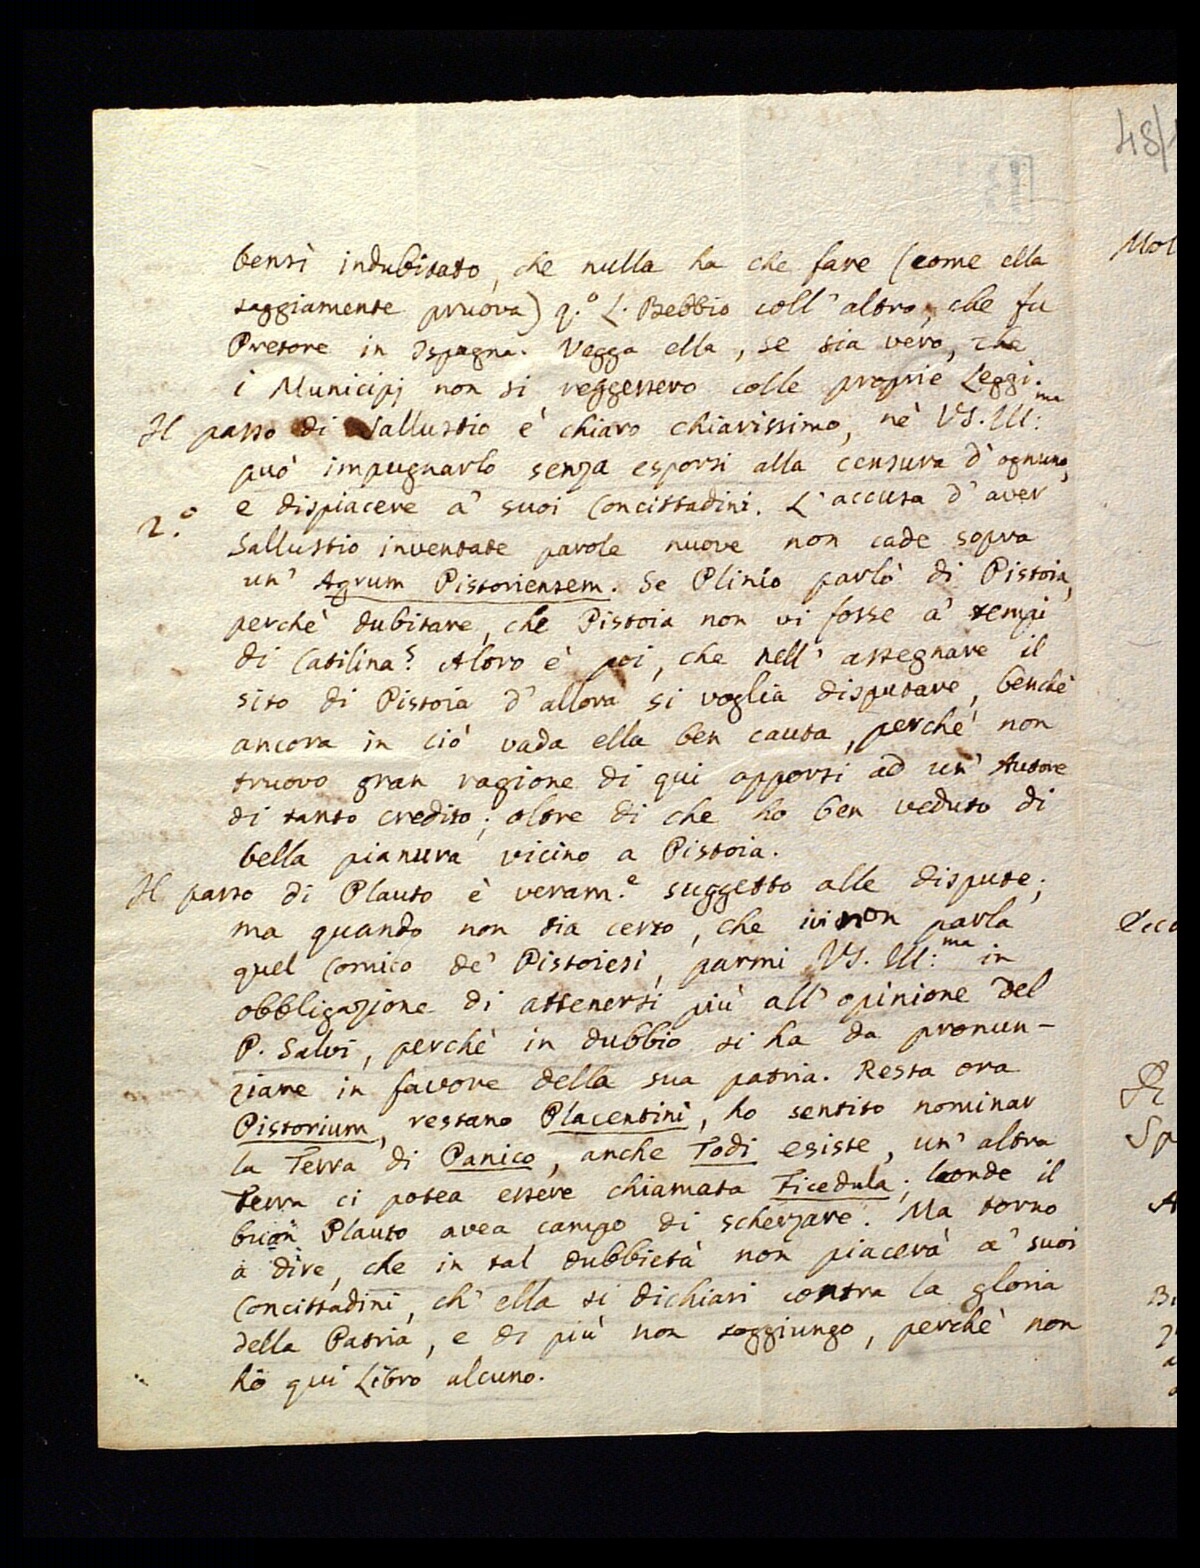 48/
bensì indubitato, che nulla ha che fare (come ella
saggiamente pruova) q.º L. Bebbio coll' altro, che fu
Pretore in Ispagna. Vegga ella, se sia vero, che
i Municipj non si reggessero colle proprie Leggi.
Il passo di Sallustio è chiaro chiarissimo, nè VS. Ill:ma
può impugnarlo senza esporsi alla censura d' ognuno,
e dispiacere a' suoi Concittadini. L' accusa d' aver
2.º
Sallustio inventate parole nuove non cade sopra
un' Agrum Pistoriensem. Se Plinio parlò di Pistoia,
perchè dubitare, che Pistoia non vi fosse a' tempi
di Catilina? Altro è poi, che nell' assegnare il
sito di Pistoia d' allora si voglia disputare, benchè
ancora in ciò vada ella ben cauta, perchè non
truovo gran ragione di qui apporsi ad un' Autore
di tanto credito; oltre di che ho ben veduto di
bella pianura vicino a Pistoia.
Il passo di Plauto è veram.e suggetto alle dispute;
ma quando non sia certo, che ivi non parla
quel Comico de' Pistoiesi, parmi VS. Ill:ma in
obbligazione di attenersi più all' opinione del
P. Salvi, perchè in dubbio si ha da pronun-
ziare in favore della sua patria. Resta ora
Pistorium, restano Placentini, ho sentito nominar
la Terra di Panico, anche Todi esiste, un' altra
Terra ci potea essere chiamata Ficedula; laonde il
buon Plauto avea campo di scherzare. Ma torno
a dire, che in tal dubbietà non piacerà a' suoi
Concittadini, ch' ella si dichiari contra la gloria
della Patria, e di più non soggiungo, perchè non
hò qui Libro alcuno.
Mol
Sp